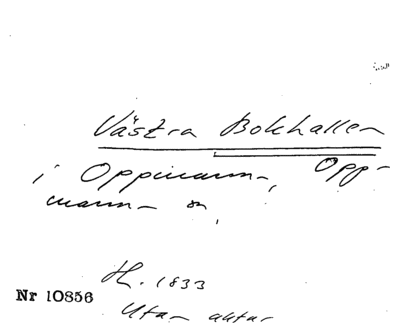 Västra Bokhallen
i Oppmanna, Opp-
manna sn,
H. 1833
Nr 10856
Utan aktar